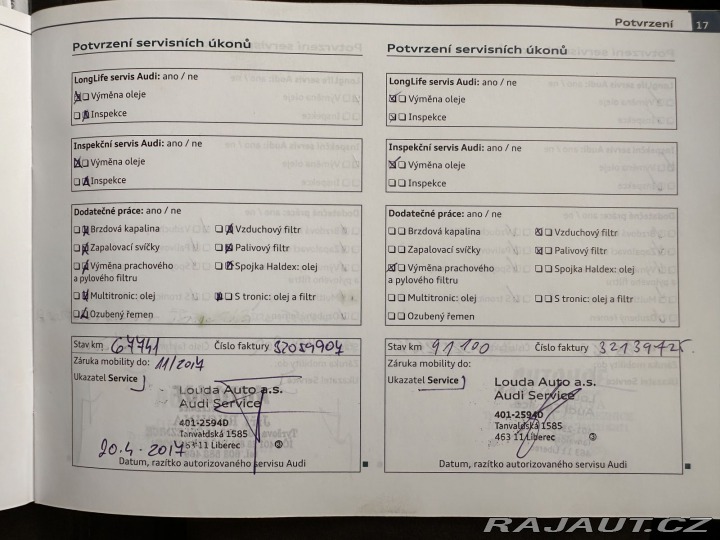 Potvrzení 17
Potvrzení servisních úkonů
LongLife servis Audi: ano / ne
Výměna oleje
Inspekce
Inspekční servis Audi: ano / ne
Výměna oleje
Inspekce
Dodatečné práce: ano / ne
Brzdová kapalina
Vzduchový filtr
Zapalovací svíčky
Palivový filtr
Výměna prachového
a pylového filtru
Spojka Haldex: olej
Multitronic: olej
S tronic: olej a filtr
Ozubený řemen
Stav km 67741 Číslo faktury 32059904
Záruka mobility do: 11/2017
Ukazatel Service
Louda Auto a.s.
Audi Service
401-2594D
Tanvaldská 1585
463 11 Liberec
20.4.2017
Datum, razítko autorizovaného servisu Audi
Potvrzení servisních úkonů
LongLife servis Audi: ano / ne
Výměna oleje
Inspekce
Inspekční servis Audi: ano / ne
Výměna oleje
Inspekce
Dodatečné práce: ano / ne
Brzdová kapalina
Vzduchový filtr
Zapalovací svíčky
Palivový filtr
Výměna prachového
a pylového filtru
Spojka Haldex: olej
Multitronic: olej
S tronic: olej a filtr
Ozubený řemen
Stav km 91100 Číslo faktury 32139725
Záruka mobility do:
Ukazatel Service
Louda Auto a.s.
Audi Service
401-2594D
Tanvaldská 1585
463 11 Liberec
Datum, razítko autorizovaného servisu Audi
RAJAUT.CZ